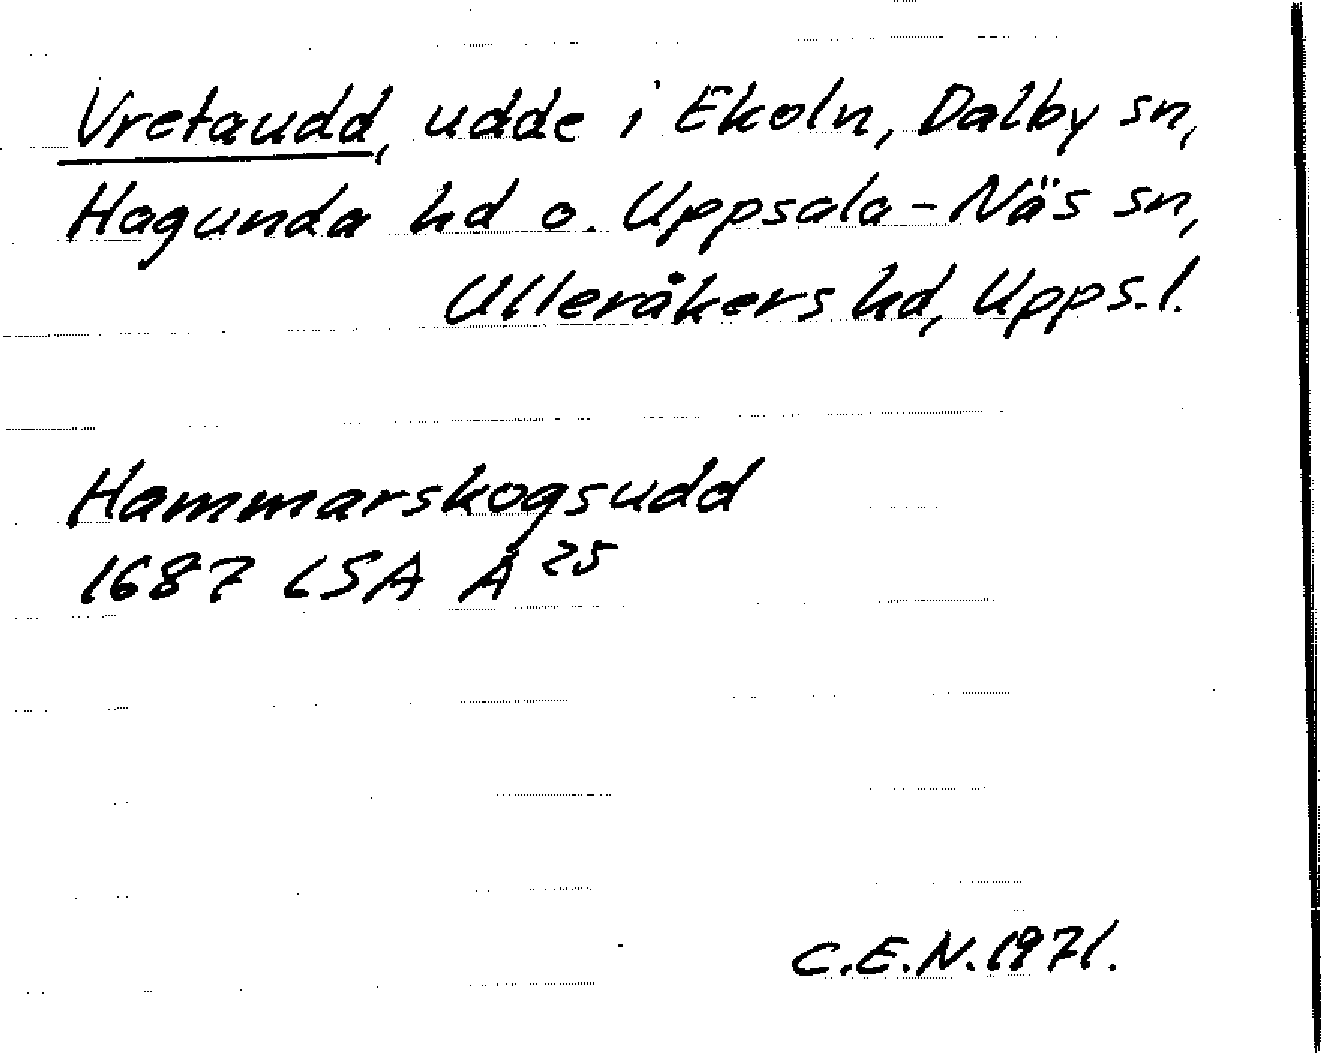 Vretaudd, udde i Ekoln, Dalby sn,
Hagunda hd o. Uppsala-Näs sn,
Ulleråkers hd, Upps.l.
Hammarskogsudd
1687 LSA A 25
C.E.N. 1971.